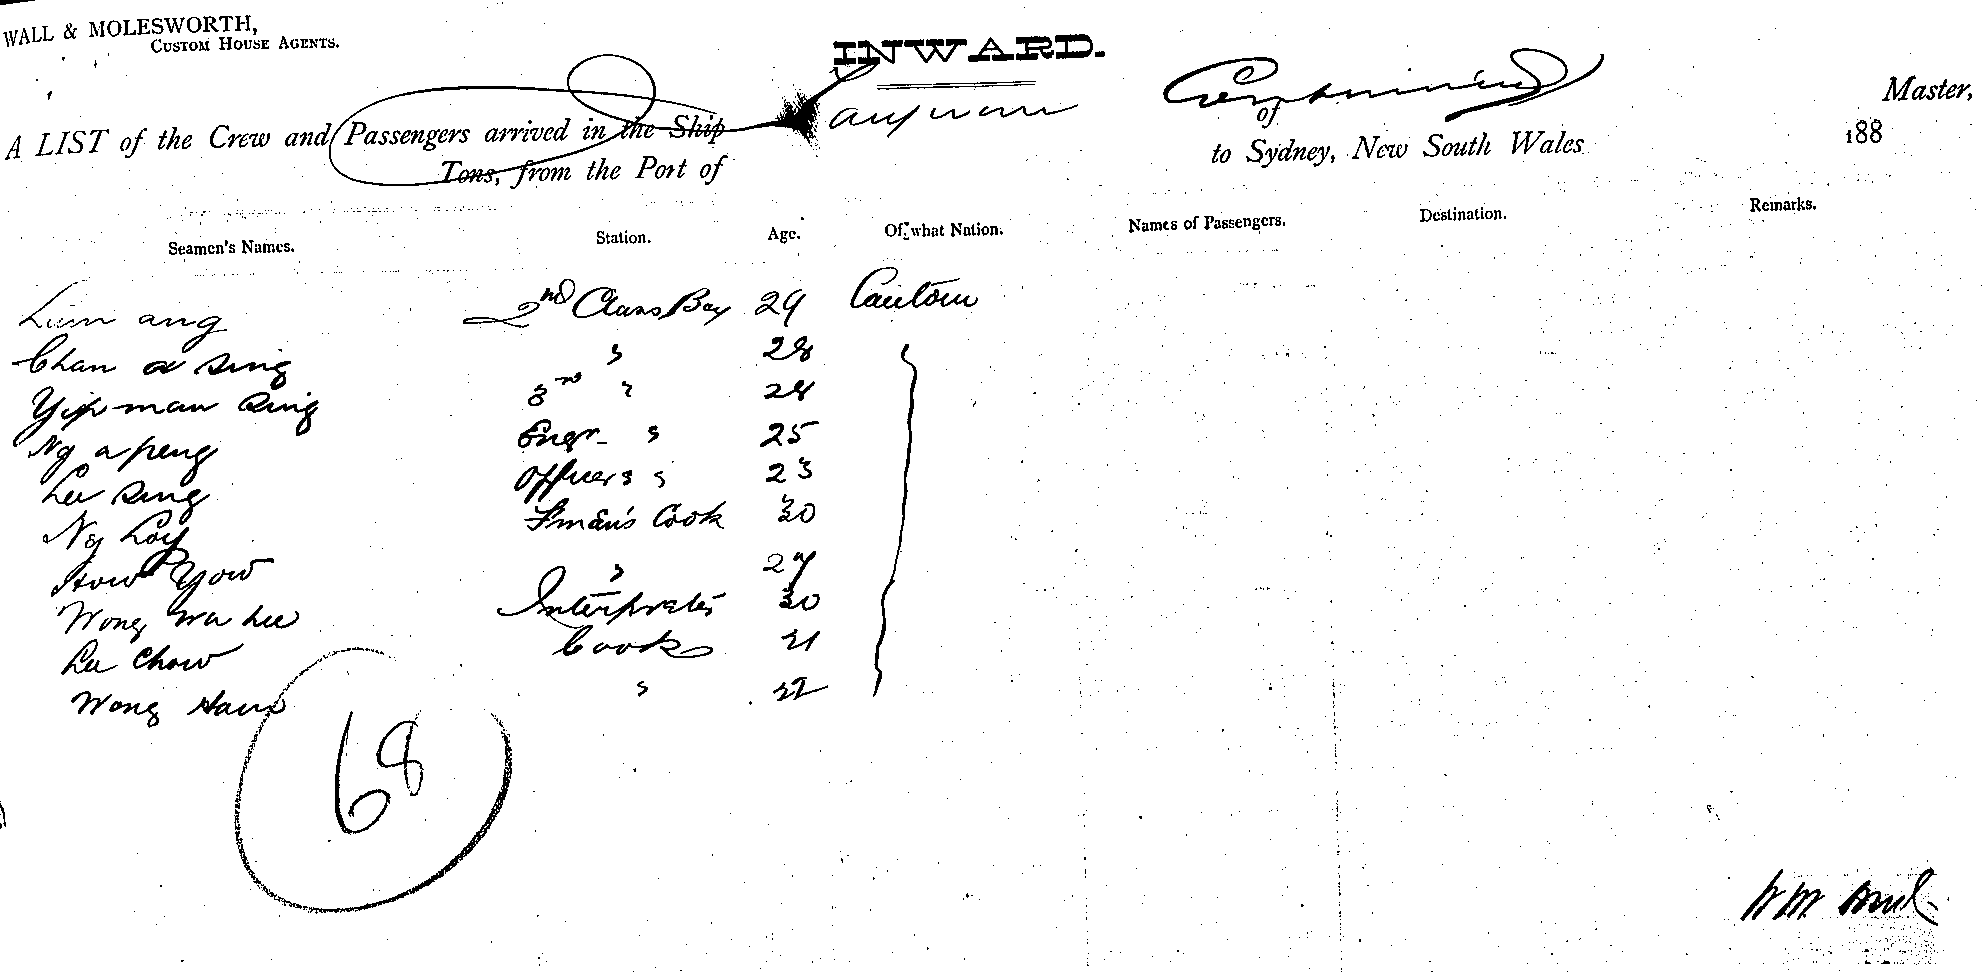 WALL & MOLESWORTH,
CUSTOM HOUSE AGENTS.
INWARD.
Taiyuan Continued Master,
A LIST of the Crew and Passengers arrived in the Ship of 188
Tons, from the Port of to Sydney, New South Wales
Seamen's Names. Station. Age. Of what Nation. Names of Passengers. Destination. Remarks.
Lum ang 2nd Class Boy 29 Canton
Chan a sing " 28
Yip man sing 3rd " 28
Ng a peng Engr. " 25
Lee sing Officers " 23
Ng Loy Fman's Cook 30
How Yow " 27
Wong Wa Lee Interpreter 30
Lee Chow Cook 31
Wong " 32
68